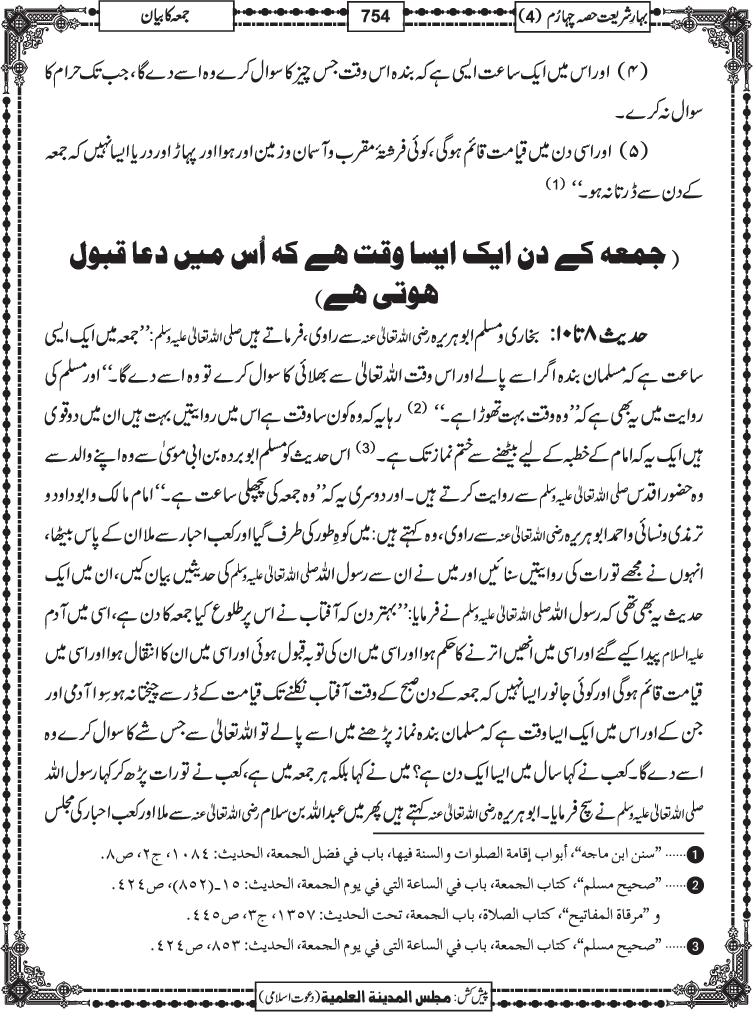 بہارِ شریعت حصہ چہارم (4)
754
جمعہ کا بیان
(۴) اور اس میں ایک ساعت ایسی ہے کہ بندہ اس وقت جس چیز کا سوال کرے وہ اسے دے گا، جب تک حرام کا
سوال نہ کرے۔
(۵) اور اسی دن میں قیامت قائم ہوگی، کوئی فرشتۂ مقرب و آسمان و زمین اور ہوا اور پہاڑ اور دریا ایسا نہیں کہ جمعہ
کے دن سے ڈرتا نہ ہو۔‘‘ (1)
(جمعہ کے دن ایک ایسا وقت ھے کہ اُس میں دعا قبول
ھوتی ھے)
حدیث ۸ تا ۱۰: بخاری و مسلم ابوہریرہ رضی اللہ تعالیٰ عنہ سے راوی، فرماتے ہیں صلی اللہ تعالیٰ علیہ وسلم: ’’جمعہ میں ایک ایسی
ساعت ہے کہ مسلمان بندہ اگر اسے پا لے اور اس وقت اللہ تعالیٰ سے بھلائی کا سوال کرے تو وہ اسے دے گا۔‘‘ اور مسلم کی
روایت میں یہ بھی ہے کہ ’’وہ وقت بہت تھوڑا ہے۔‘‘ (2) رہا یہ کہ وہ کون سا وقت ہے اس میں روایتیں بہت ہیں ان میں دو قوی
ہیں ایک یہ کہ امام کے خطبہ کے لیے بیٹھنے سے ختم نماز تک ہے۔ (3) اس حدیث کو مسلم ابو بردہ بن ابی موسیٰ سے وہ اپنے والد سے
وہ حضور اقدس صلی اللہ تعالیٰ علیہ وسلم سے روایت کرتے ہیں۔ اور دوسری یہ کہ ’’وہ جمعہ کی پچھلی ساعت ہے۔‘‘ امام مالک و ابو داود و
ترمذی و نسائی و احمد ابوہریرہ رضی اللہ تعالیٰ عنہ سے راوی، وہ کہتے ہیں: میں کوہِ طور کی طرف گیا اور کعب احبار سے ملا ان کے پاس بیٹھا،
انہوں نے مجھے تورات کی روایتیں سنائیں اور میں نے ان سے رسول اللہ صلی اللہ تعالیٰ علیہ وسلم کی حدیثیں بیان کیں، ان میں ایک
حدیث یہ بھی تھی کہ رسول اللہ صلی اللہ تعالیٰ علیہ وسلم نے فرمایا: ’’بہتر دن کہ آفتاب نے اس پر طلوع کیا جمعہ کا دن ہے، اسی میں آدم
علیہ السلام پیدا کیے گئے اور اسی میں انھیں اترنے کا حکم ہوا اور اسی میں ان کی توبہ قبول ہوئی اور اسی میں ان کا انتقال ہوا اور اسی میں
قیامت قائم ہوگی اور کوئی جانور ایسا نہیں کہ جمعہ کے دن صبح کے وقت آفتاب نکلنے تک قیامت کے ڈر سے چیختا نہ ہو سوا آدمی اور
جن کے اور اس میں ایک ایسا وقت ہے کہ مسلمان بندہ نماز پڑھنے میں اسے پا لے تو اللہ تعالیٰ سے جس شے کا سوال کرے وہ
اسے دے گا۔ کعب نے کہا سال میں ایسا ایک دن ہے؟ میں نے کہا بلکہ ہر جمعہ میں ہے، کعب نے تورات پڑھ کر کہا رسول اللہ
صلی اللہ تعالیٰ علیہ وسلم نے سچ فرمایا۔ ابوہریرہ رضی اللہ تعالیٰ عنہ کہتے ہیں پھر میں عبداللہ بن سلام رضی اللہ تعالیٰ عنہ سے ملا اور کعب احبار کی مجلس
1 ...... ”سنن ابن ماجه“، أبواب إقامة الصلوات والسنة فيها، باب في فضل الجمعة، الحديث: ١٠٨٤، ج٢، ص٨.
2 ...... ”صحيح مسلم“، كتاب الجمعة، باب في الساعة التي في يوم الجمعة، الحديث: ١٥-(٨٥٢)، ص٤٢٤.
و ”مرقاة المفاتيح“، كتاب الصلاة، باب الجمعة، تحت الحديث: ١٣٥٧، ج٣، ص٤٤٥.
3 ...... ”صحيح مسلم“، كتاب الجمعة، باب في الساعة التى في يوم الجمعة، الحديث: ٨٥٣، ص٤٢٤.
پیش کش: مجلس المدينة العلمية (دعوتِ اسلامی)